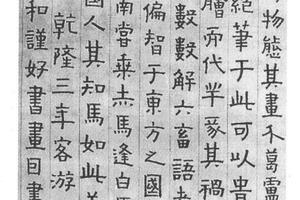 物態其畫不葛
絕筆于此可以貴
而代半其禍
數數解六畜語
偏智于東方之國
南嘗乘馬逢白馬
國人其知馬如此
乾隆三年客游
和謹好書畫目書